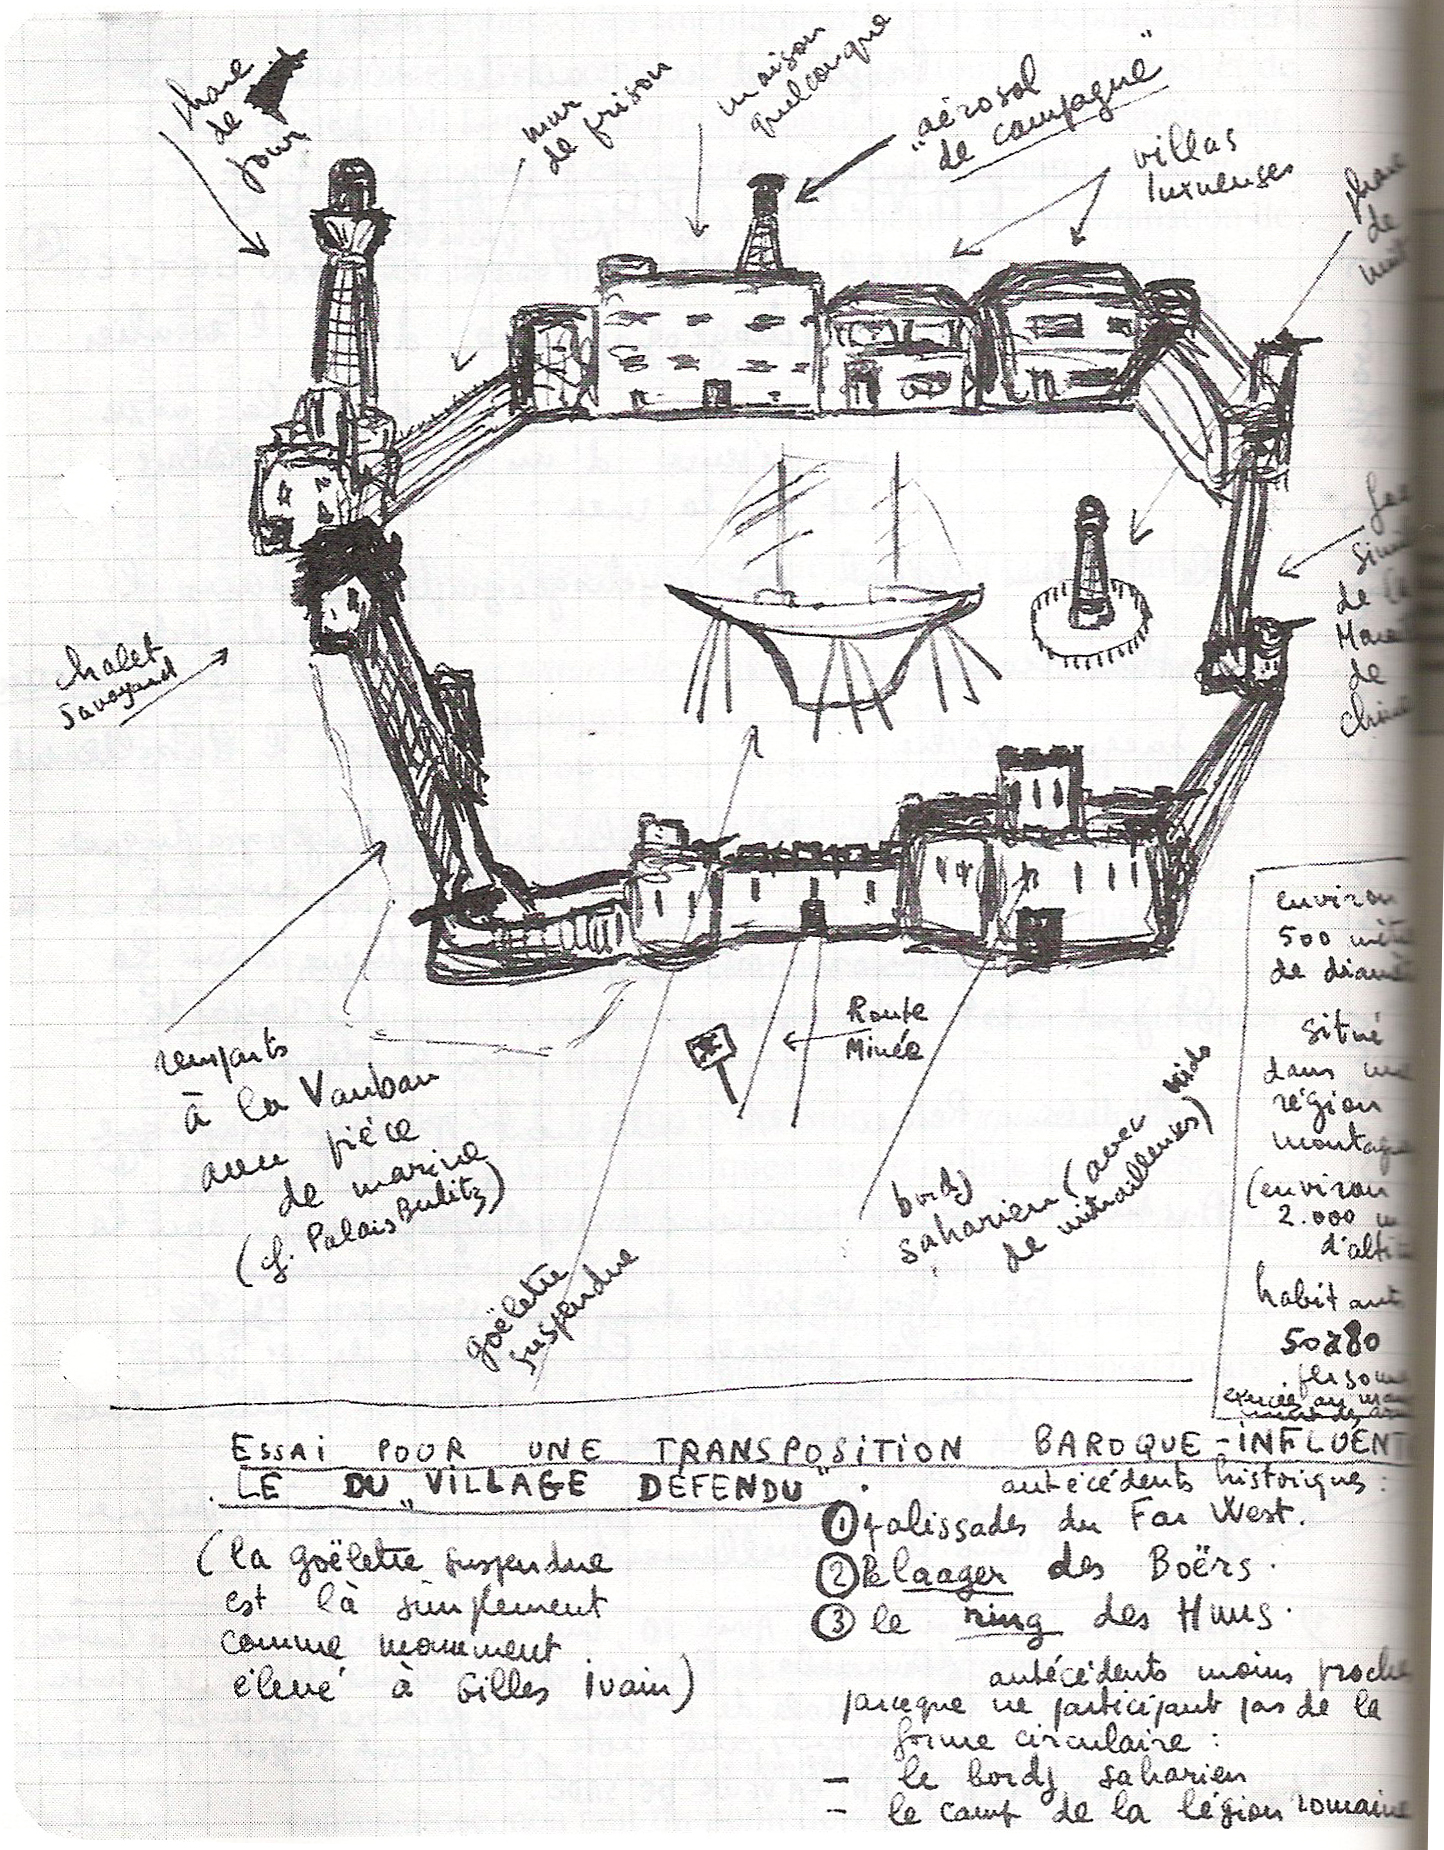 phare
de
jour
mur
de prison
maison
quelconque
"aérosol
de campagne"
villas
luxueuses
phare
de
chalet
savoyard
de
de
remparts
à la Vauban
avec pièce
de marine
(cf. Palais Bulitz)
goëlette
suspendue
Route
Minée
bordj
saharien (avec nids
de mitrailleuses)
environ
500
de
situé
dans
région
(environ
2.000
habitants
50 à 80
ESSAI POUR UNE TRANSPOSITION BAROQUE-INFLUENT
LE DU "VILLAGE DÉFENDU".
(la goëlette suspendue
est là simplement
comme monument
élevé à Gilles Ivain)
antécédents historiques :
① palissades du Far West.
② le laager des Boërs.
③ le ring des Huns.
antécédents moins proche
parceque ne participant pas de la
forme circulaire :
- le bordj saharien
- le camp de la légion romaine